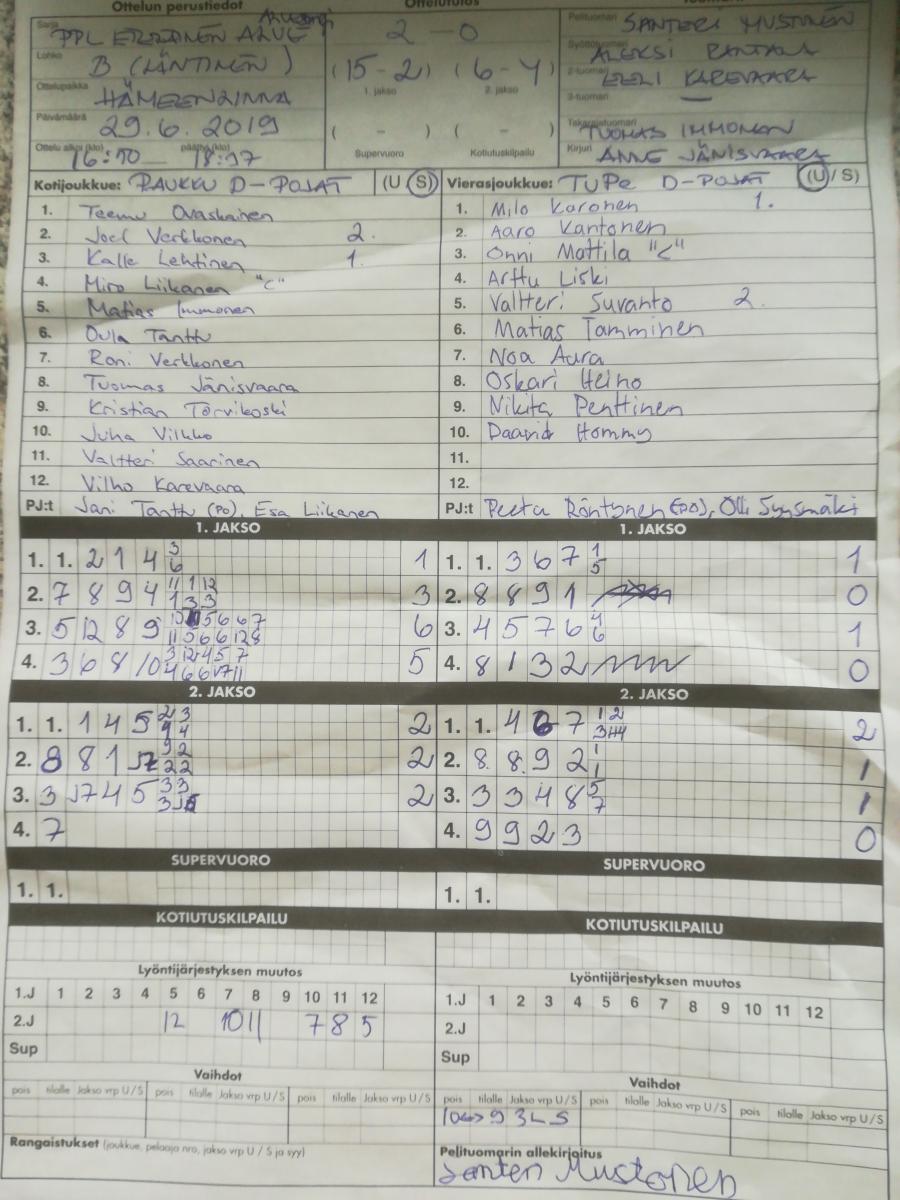 Ottelun perustiedot Ottelutulos
Sarja PPL ALUE 2 - 0 Pelituomari SANTERI MUSTONEN
Lohko B (LÄNTINEN) (15 - 2) (6 - 4) Syöttötuomari ALEKSI RANTALA
1. jakso 2. jakso 2-tuomari EELI KAREVAARA
Ottelupaikka HÄMEENLINNA 3-tuomari —
Päivämäärä 29.6.2019 ( - ) ( - ) Takarajatuomari TUOMAS IMMONEN
Ottelu alkoi (klo) 16:50 päättyi (klo) Supervuoro Kotiutuskilpailu Kirjuri ANNE JÄNISVAARA
Kotijoukkue: PAUKKU D-POJAT (U / S) Vierasjoukkue: TuPe D-POJAT (U / S)
1. Teemu Ovaskainen 1. Milo Karonen 1.
2. Joel Verkkonen 2. 2. Aaro Kantonen
3. Kalle Lehtinen 1. 3. Onni Mattila "C"
4. Miro Liikanen "C" 4. Arttu Liski
5. Matias Immonen 5. Valtteri Suvanto 2.
6. Oula Tanttu 6. Matias Tamminen
7. Roni Verkkonen 7. Noa Aura
8. Tuomas Jänisvaara 8. Oskari Heino
9. Kristian Torvikoski 9. Nikita Penttinen
10. Juha Vilkko 10. Daavid Hommy
11. Valtteri Saarinen 11.
12. Vilho Karevaara 12.
PJ:t Jani Tanttu (PO), Esa Liikanen PJ:t Peetu Röntynen (PO), Olli Syysmäki
1. JAKSO 1. JAKSO
1. 1. 2 1 4 3 6 1 1. 1. 3 6 7 1 5 1
2. 7 8 9 4 3 2. 8 8 9 1 0
3. 5 12 8 9 6 3. 4 5 7 6 4 6 1
4. 3 6 8 10 5 4. 8 1 3 2 0
2. JAKSO 2. JAKSO
1. 1. 1 4 5 2 1. 1. 4 6 7 2
2. 8 8 1 2 2. 8 8 9 2 1 1 1
3. 3 4 5 2 3. 3 3 4 8 5 7 1
4. 7 4. 9 9 2 3 0
SUPERVUORO SUPERVUORO
1. 1. 1. 1.
KOTIUTUSKILPAILU KOTIUTUSKILPAILU
Lyöntijärjestyksen muutos Lyöntijärjestyksen muutos
1.J 1 2 3 4 5 6 7 8 9 10 11 12 1.J 1 2 3 4 5 6 7 8 9 10 11 12
2.J 12 10 11 7 8 5 2.J
Sup Sup
Vaihdot Vaihdot
pois tilalle Jakso vrp U/S pois tilalle Jakso vrp U/S pois tilalle Jakso vrp U/S pois tilalle Jakso vrp U/S pois tilalle Jakso vrp U/S pois tilalle Jakso vrp U/S
Rangaistukset (joukkue, pelaaja nro, jakso vrp U / S ja syy) Pelituomarin allekirjoitus
Santeri Mustonen